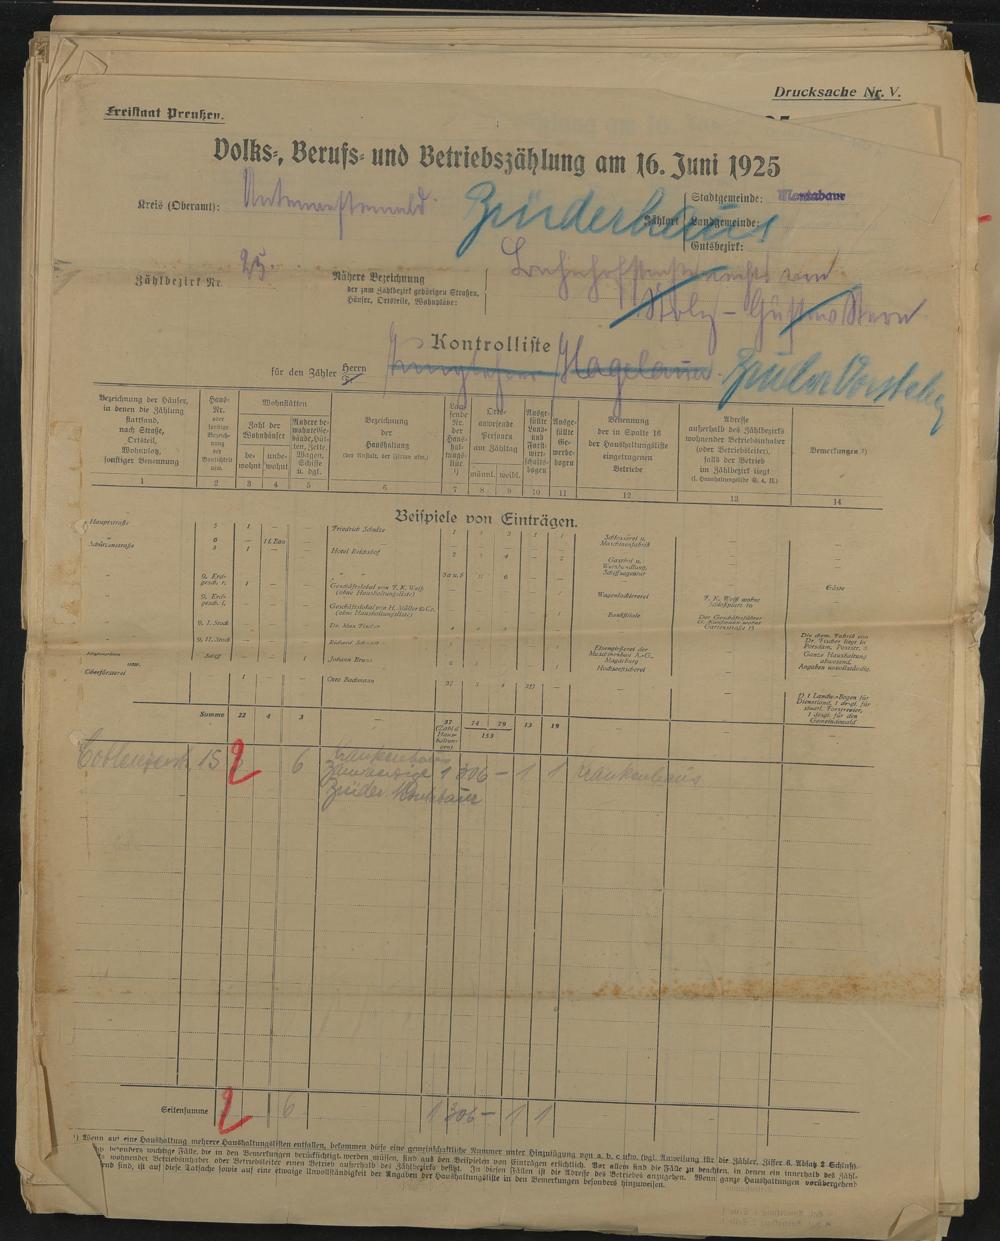 Drucksache Nr. V.
Freistaat Preußen.
Volks-, Berufs- und Betriebszählung am 16. Juni 1925
Kreis (Oberamt): Unterwesterwald
Brüderhaus
Zählort
Stadtgemeinde: Montabaur
Landgemeinde:
Gutsbezirk:
Zählbezirk Nr. 25.
Nähere Bezeichnung
der zum Zählbezirk gehörigen Straßen,
Häuser, Ortsteile, Wohnplätze:
Bahnhofstraße rechts von
Stolz - Gustav Stern
Kontrolliste
für den Zähler Herrn Hagelauer. Bruder Vorsteher
Bezeichnung der Häuser,
in denen die Zählung
stattfand,
nach Straße,
Ortsteil,
Wohnplatz,
sonstiger Benennung
Haus-
Nr.
oder
sonstige
Bezeich-
nung
der
Baulichkeit
usw.
Wohnstätten
Zahl der
Wohnhäuser
be-
wohnt
unbe-
wohnt
Andere be-
wohnte Ge-
bäude, Hüt-
ten, Zelte,
Wagen,
Schiffe
u. dgl.
Bezeichnung
der
Haushaltung
(bei Anstalt. der Firma usw.)
Lau-
fende
Nr.
der
Haus-
hal-
tungs-
liste
¹)
Orts-
anwesende
Personen
am Zähltag
männl. weibl.
Ausge-
füllte
Land-
und
Forst-
wirt-
schafts-
bogen
Ausge-
füllte
Ge-
werbe-
bogen
Benennung
der in Spalte 16
der Haushaltungsliste
eingetragenen
Betriebe
Adresse
außerhalb des Zählbezirks
wohnender Betriebsinhaber
(oder Betriebsleiter),
falls der Betrieb
im Zählbezirk liegt
(s. Haushaltungsliste S. 4, II.)
Bemerkungen ²)
1 2 3 4 5 6 7 8 9 10 11 12 13 14
Beispiele von Einträgen.
Hauptstraße 5 1 — — Friedrich Schulze 1 1 Schlosserei u.
Maschinenfabrik
" 6 — —
Schützenstraße 8 1 — — Hotel Reichshof 2 Gasthof u.
Weinhandlung,
Schiffsagentur
" 9, Erd-
gesch. r. 1 " 3a u. b 6 Gäste
Geschäftslokal von F. K. Weiß
(ohne Haushaltungsliste) Wagenlackiererei F. K. Weiß wohnt
Schloßplatz 10
" 9, Erd-
gesch. l. Geschäftslokal von H. Müller & Co.
(ohne Haushaltungsliste) Bankfiliale Der Geschäftsführer
G. Kaufmann wohnt
Gartenstraße 15
9, I. Stock Dr. Max Fischer
Die chem. Fabrik von
Dr. Fischer liegt in
Potsdam, Poststr. 5
9, II. Stock Richard Schmidt Eisengießerei der
Maschinenbau A.-G.,
Magdeburg
Ganze Haushaltung
abwesend.
Angaben unvollständig.
Schiff 1 Johann Bruns Hochseefischerei
usw.
Oberförsterei 1 — — Otto Bachmann 37
²) 1 Landw.-Bogen für
Dienstland, 1 desgl. für
staatl. Forstrevier,
1 desgl. für den
Gemeindewald
Summe 22 4 3 — 37 74 79 13 19
(Zahl d.
Haus-
haltun-
gen) 153
Coblenzerstr. 15 2 6 Krankenhaus
Barmherzige
Brüder Montabaur 1 306 — 1 1 Krankenhaus
Seitensumme 2 6 1 306 — 1 1
¹) Wenn auf eine Haushaltung mehrere Haushaltungslisten entfallen, bekommen diese eine gemeinschaftliche Nummer unter Hinzufügung von a, b, c usw. (vgl. Anweisung für die Zähler, Ziffer 6, Absatz 2 Schlußs).
besonders wichtige Fälle, die in den Bemerkungen berücksichtigt werden müssen, sind aus den Beispielen von Einträgen ersichtlich. Vor allem sind die Fälle zu beachten, in denen ein innerhalb des Zähl-
wohnender Betriebsinhaber oder Betriebsleiter einen Betrieb außerhalb des Zählbezirks besitzt. In diesen Fällen ist die Adresse des Betriebes anzugeben. Wenn ganze Haushaltungen vorübergehend
end sind, ist auf diese Tatsache sowie auf eine etwaige Unvollständigkeit der Angaben der Haushaltungsliste in den Bemerkungen besonders hinzuweisen.